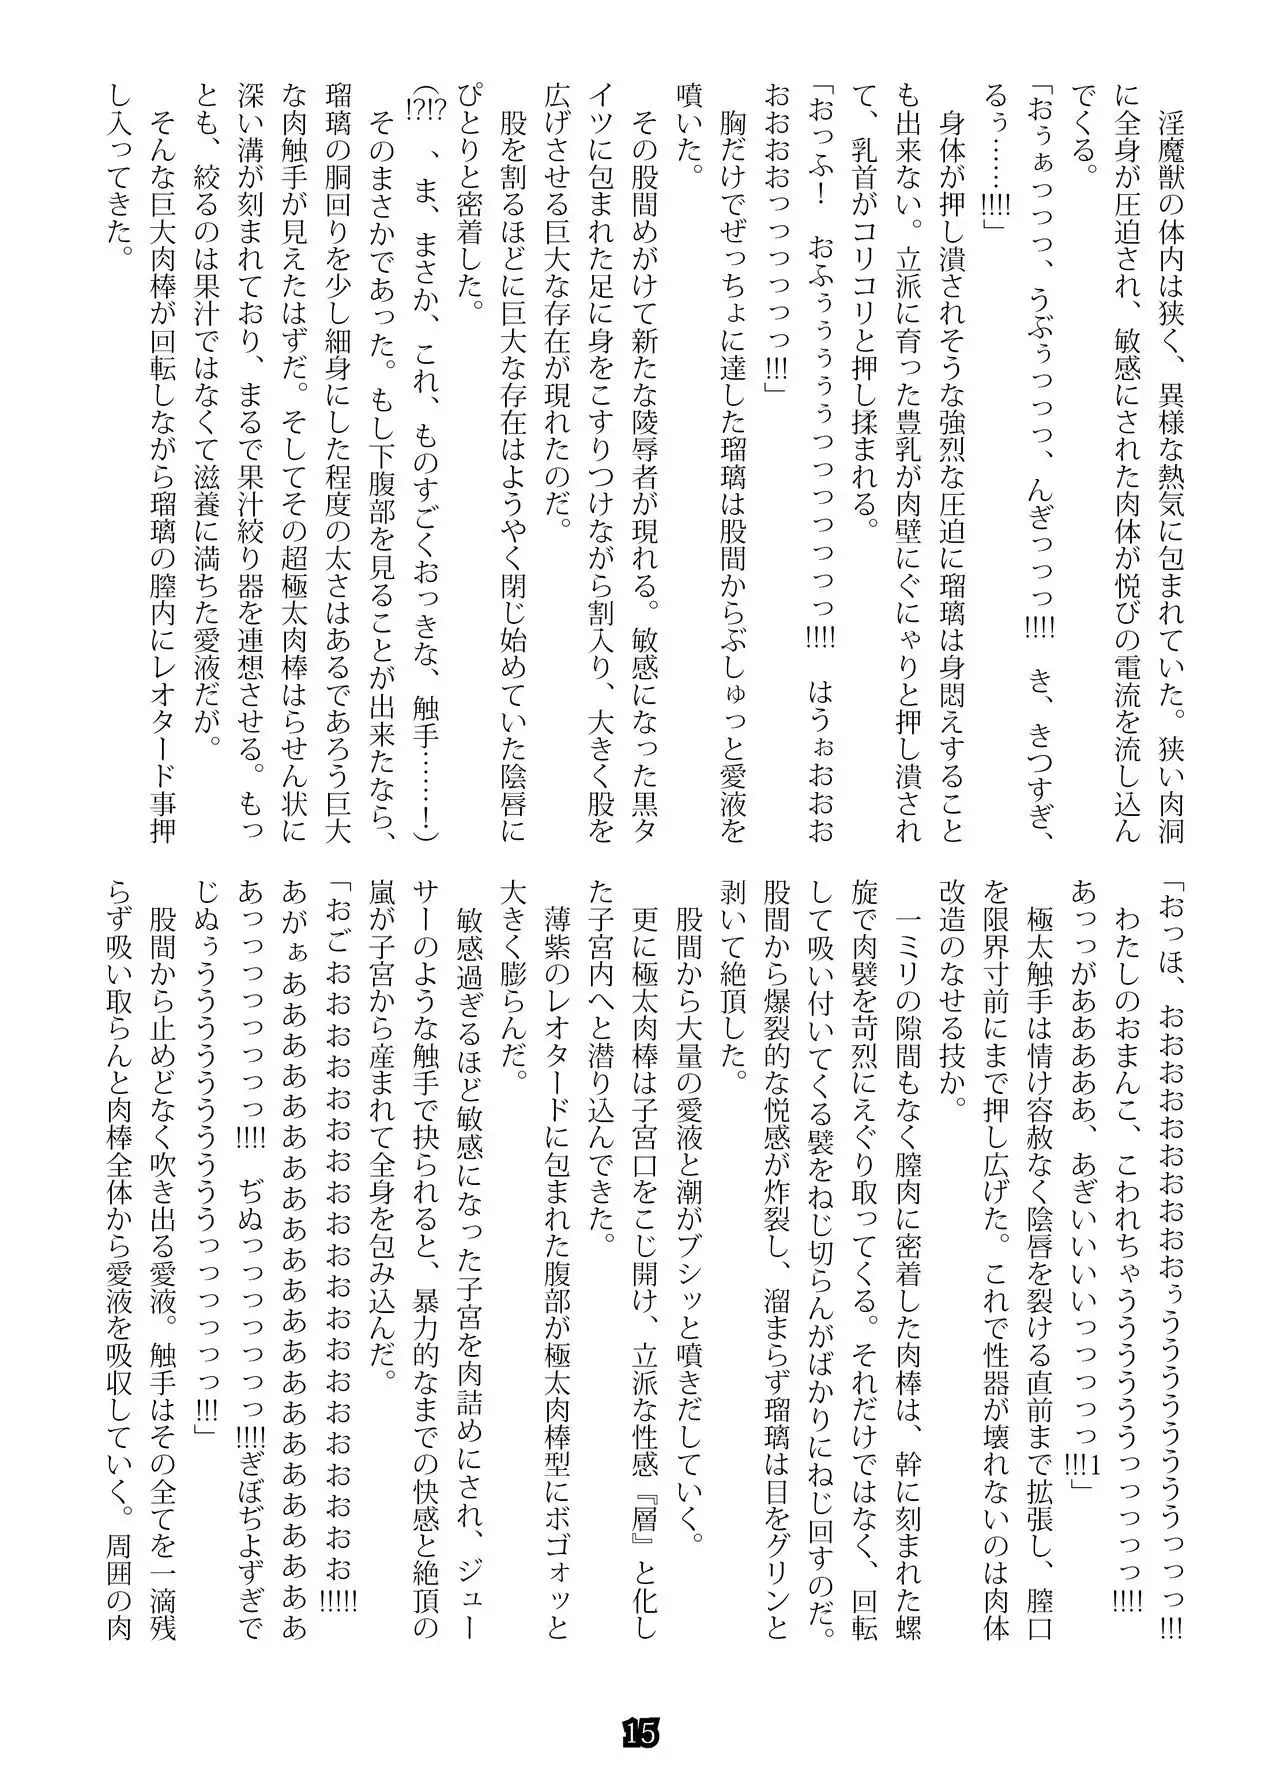 淫魔獣の体内は狭く、異様な熱気に包まれていた。狭い肉洞
に全身が圧迫され、敏感にされた肉体が悦びの電流を流し込ん
でくる。
「おぅぁっっっ、うぶぅっっっ、んぎっっっっ!!!!　き、きつすぎ、
るぅ……!!!!」
身体が押し潰されそうな強烈な圧迫に瑠璃は身悶えすること
も出来ない。立派に育った豊乳が肉壁にぐにゃりと押し潰され
て、乳首がコリコリと押し揉まれる。
「おっふ！　おふぅぅぅぅぅっっっっっっっ!!!!　はうぉおおお
おおおおっっっっっっ!!!」
胸だけでぜっちょに達した瑠璃は股間からぶしゅっと愛液を
噴いた。
その股間めがけて新たな陵辱者が現れる。敏感になった黒タ
イツに包まれた足に身をこすりつけながら割入り、大きく股を
広げさせる巨大な存在が現れたのだ。
股を割るほどに巨大な存在はようやく閉じ始めていた陰唇に
ぴとりと密着した。
(!?!?　、ま、まさか、これ、ものすごくおっきな、触手……！)
そのまさかであった。もし下腹部を見ることが出来たなら、
瑠璃の胴回りを少し細身にした程度の太さはあるであろう巨大
な肉触手が見えたはずだ。そしてその超極太肉棒はらせん状に
深い溝が刻まれており、まるで果汁絞り器を連想させる。もっ
とも、絞るのは果汁ではなくて滋養に満ちた愛液だが。
そんな巨大肉棒が回転しながら瑠璃の膣内にレオタード事押
し入ってきた。
「おっほ、おおおおおおおおおおぅうううううううううっっっ!!!
わたしのおまんこ、こわれちゃうううううううっっっっっ!!!!
あっっがああああああ、あぎいいいいいっっっっっ!!!1」
極太触手は情け容赦なく陰唇を裂ける直前まで拡張し、膣口
を限界寸前にまで押し広げた。これで性器が壊れないのは肉体
改造のなせる技か。
一ミリの隙間もなく膣肉に密着した肉棒は、幹に刻まれた螺
旋で肉襞を苛烈にえぐり取ってくる。それだけではなく、回転
して吸い付いてくる襞をねじ切らんがばかりにねじ回すのだ。
股間から爆裂的な悦感が炸裂し、溜まらず瑠璃は目をグリンと
剥いて絶頂した。
股間から大量の愛液と潮がブシッと噴きだしていく。
更に極太肉棒は子宮口をこじ開け、立派な性感『層』と化し
た子宮内へと潜り込んできた。
薄紫のレオタードに包まれた腹部が極太肉棒型にボゴォッと
大きく膨らんだ。
敏感過ぎるほど敏感になった子宮を肉詰めにされ、ジュー
サーのような触手で抉られると、暴力的なまでの快感と絶頂の
嵐が子宮から産まれて全身を包み込んだ。
「おごおおおおおおおおおおおおおおおおおおおおおおお!!!!!
あがぁああああああああああああああああああああああああ
あっっっっっっっっっ!!!!　ぢぬっっっっっっっっ!!!!ぎぼぢよずぎで
じぬぅうううううううううううっっっっっっっ!!!」
股間から止めどなく吹き出る愛液。触手はその全てを一滴残
らず吸い取らんと肉棒全体から愛液を吸収していく。周囲の肉
15